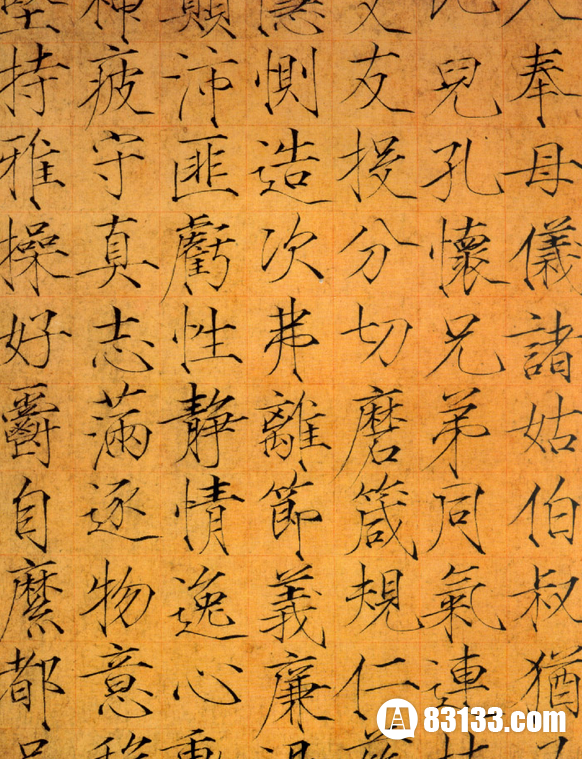 入奉母儀諸姑伯叔猶子
比兒孔懷兄弟同氣連枝
交友投分切磨箴規仁慈
隱惻造次弗離節義廉退
顛沛匪虧性靜情逸心動
神疲守真志滿逐物意移
堅持雅操好爵自縻都邑
83133.com